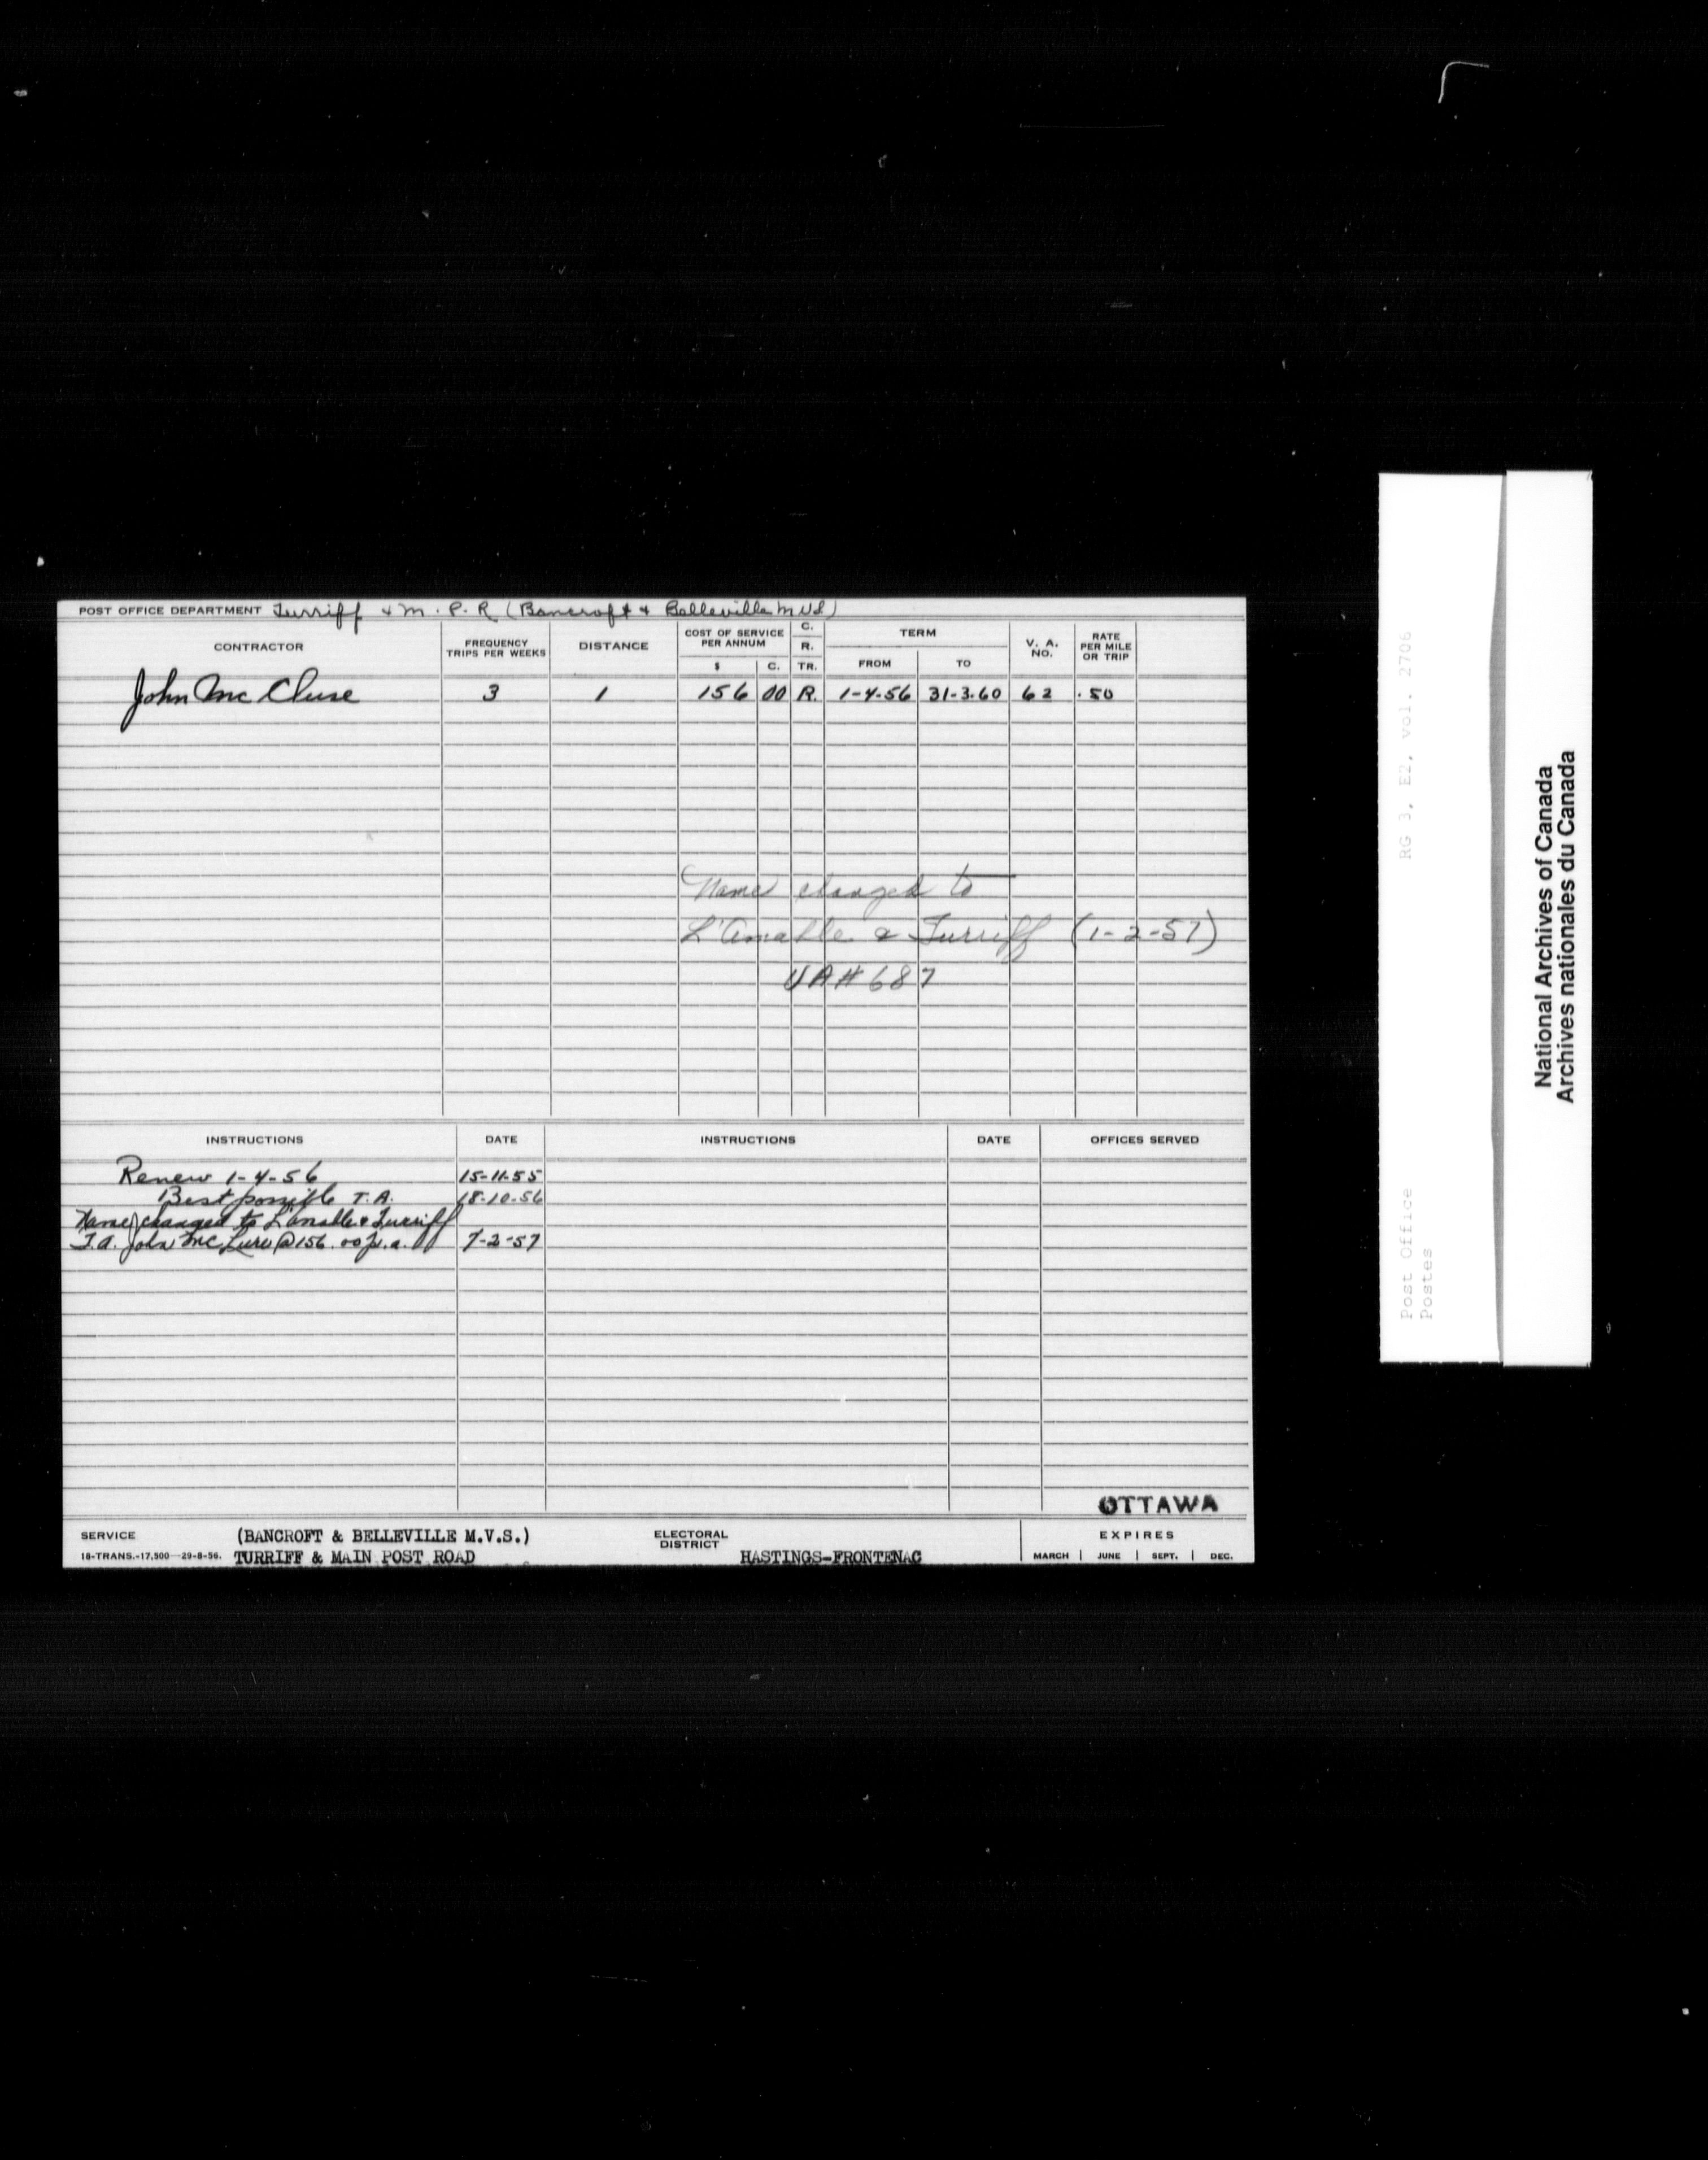 POST OFFICE DEPARTMENT Turriff & M.P.R (Bancroft & Belleville M.V.S)
CONTRACTOR FREQUENCY TRIPS PER WEEKS DISTANCE COST OF SERVICE PER ANNUM $ C. C. R. TR. TERM FROM TO V. A. NO. RATE PER MILE OR TRIP
John Mc Cluse 3 1 156 00 R. 1-4-56 31-3-60 62 .50
Name changed to
L'Amable & Turriff (1-2-57)
VA # 687
INSTRUCTIONS DATE INSTRUCTIONS DATE OFFICES SERVED
Renew 1-4-56 15-11-55
Best possible T.A. 18-10-56
Name changed to L'Amable & Turriff
T.A. John McLure @ 156.00 p.a. 7-2-57
OTTAWA
SERVICE (BANCROFT & BELLEVILLE M.V.S.) ELECTORAL DISTRICT EXPIRES
18-TRANS.-17,500—29-8-56. TURRIFF & MAIN POST ROAD HASTINGS-FRONTENAC MARCH JUNE SEPT. DEC.
RG 3, E2, vol. 2706
Post Office
Postes
National Archives of Canada
Archives nationales du Canada